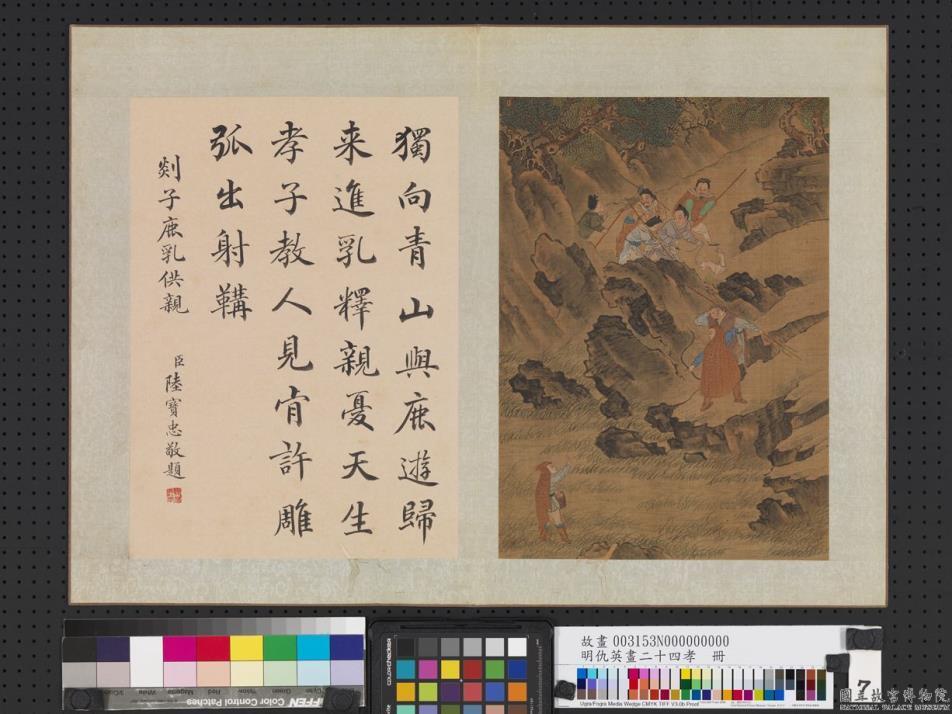 獨向青山與鹿遊歸
来進乳釋親憂天生
孝子教人見肯許雕
弧出射鞲
剡子鹿乳供親
臣陸寶忠敬題
故畫 003153N000000000
明仇英畫二十四孝 冊
Ugra/Fogra Media Wedge CMYK TIFF V3.0b Proof
7
Color Control Patches
國立故宮博物院
NATIONAL PALACE MUSEUM